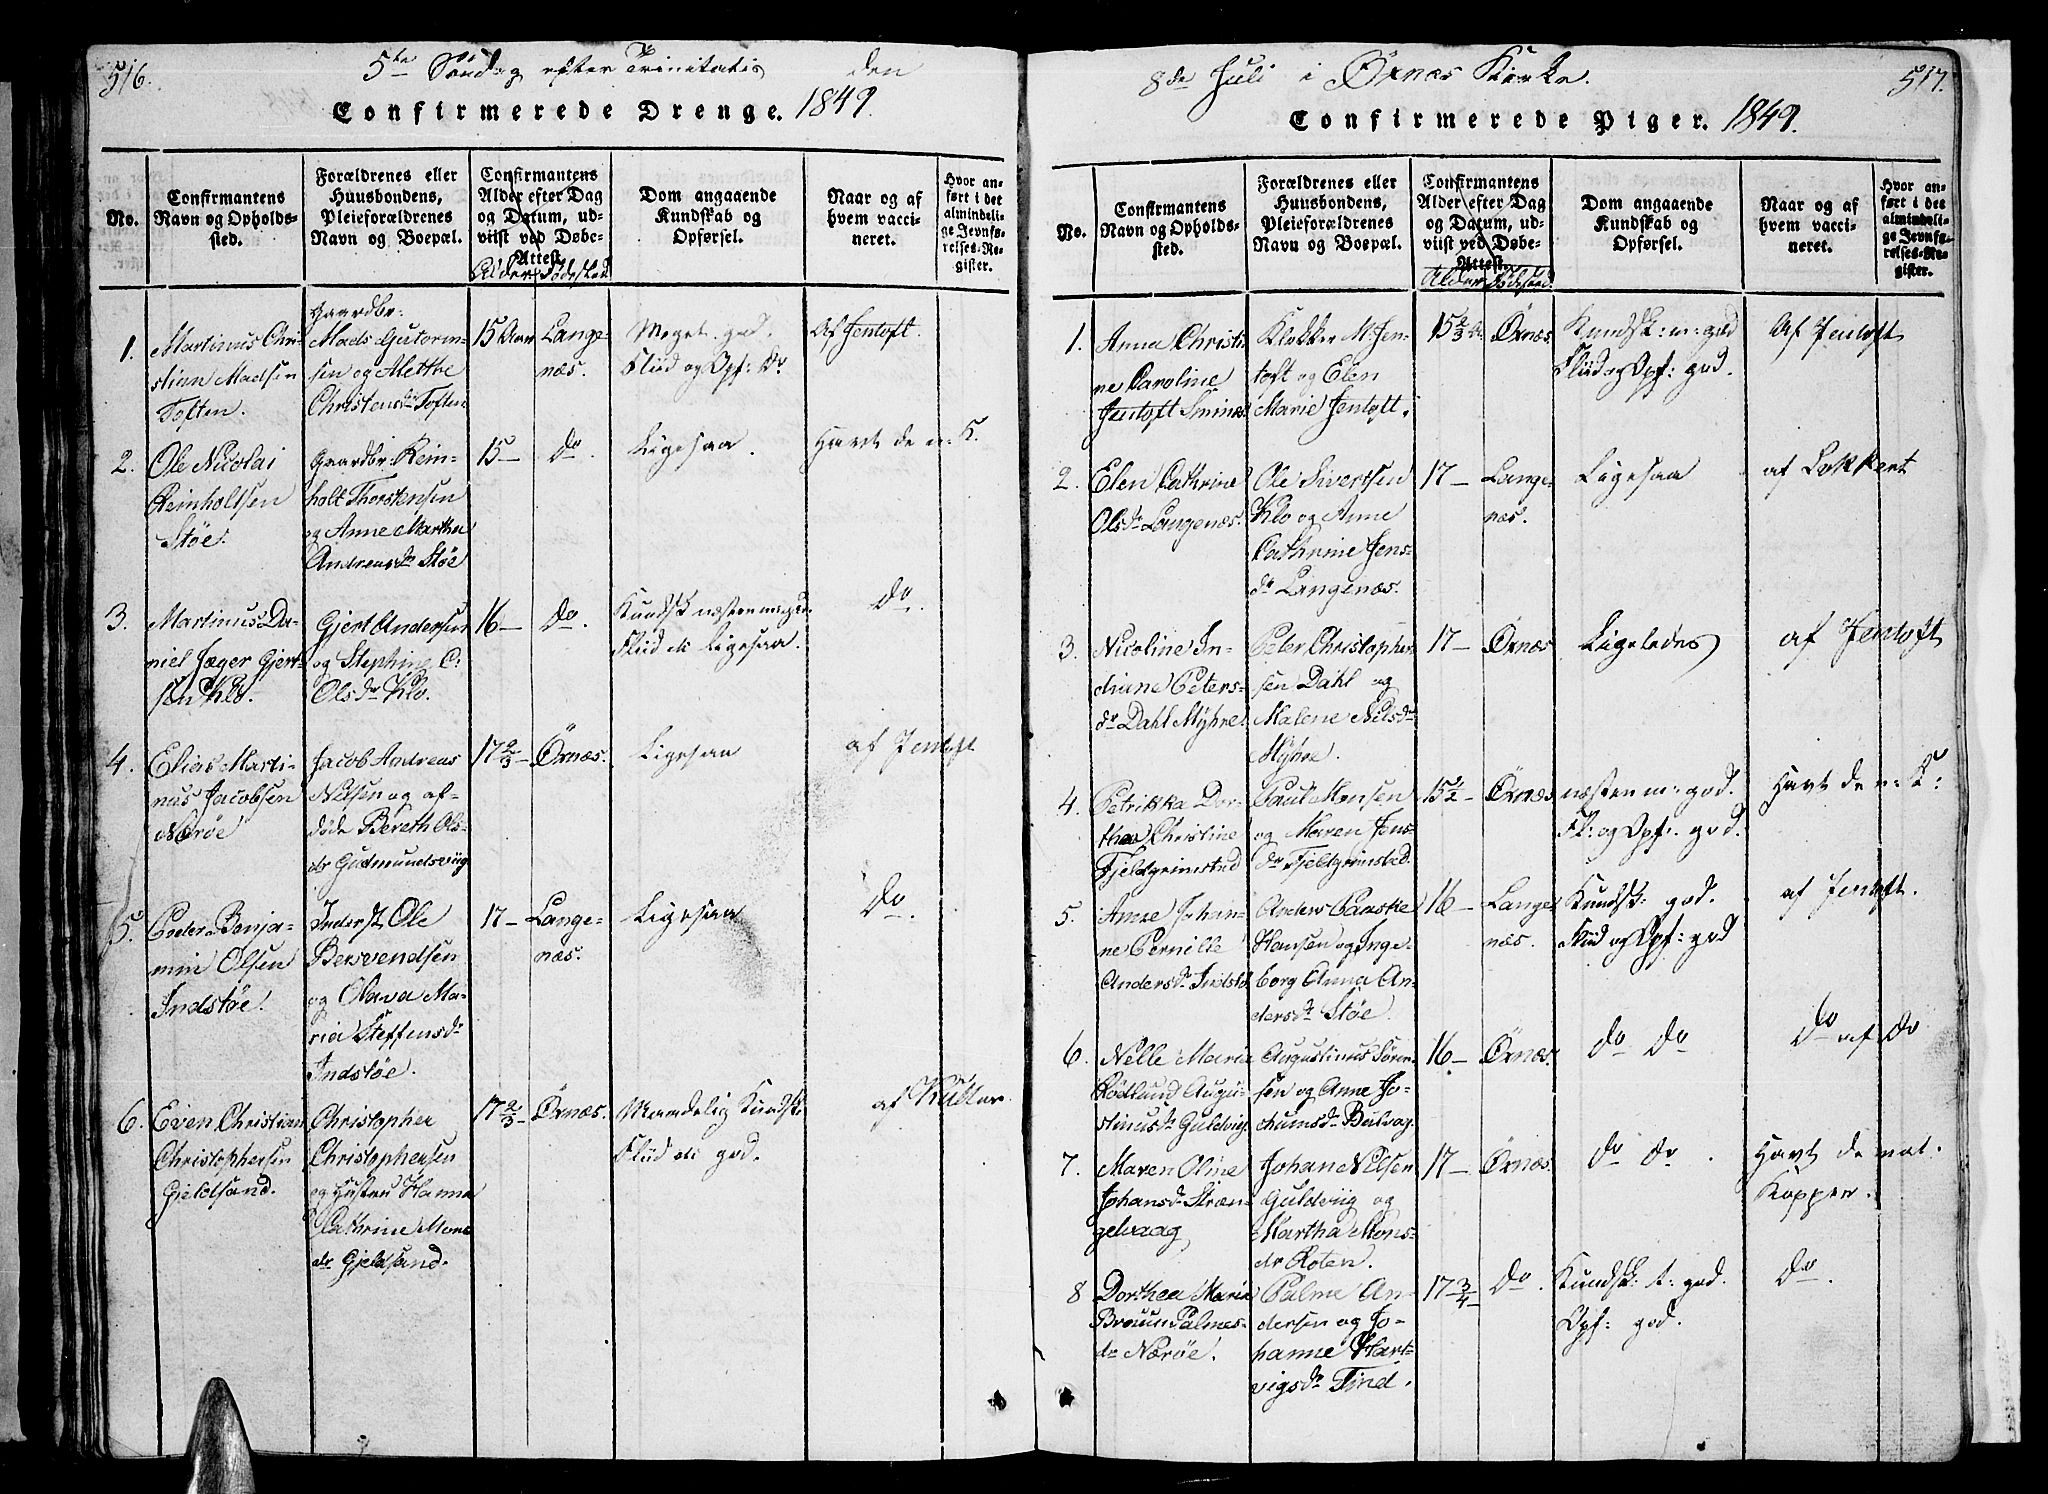 516.
5te Søndag efter Trinitatis den
Confirmerede Drenge. 1849.
No.
Confirmantens
Navn og Opholds-
sted.
Forældrenes eller
Huusbondens,
Pleieforældrenes
Navn og Boepæl.
Confirmantens
Alder efter Dag
og Datum, ud-
viist ved Døbe-
Attest.
Alder Fødested
Dom angaaende
Kundskab og
Opførsel.
Naar og af
hvem vacci-
neret.
Hvor an-
ført i det
almindeli-
ge Jevnfø-
relses-Re-
gister.
1.
Martinus Chri-
stian Madsen
Toften.
Gaardbr.
Mads Gutorm-
sen og Mette
Christensdr Toften
15 Aar
Lange-
næs.
Meget god.
Fliid og Opf: do
Af Jentoft.
2.
Ole Nicolai
Reinholtsen
Støe.
Gaardbr. Rein-
holt Thorstensen
og Anne Martha
Andreasdr Støe
15 —
do.
Ligesaa.
Havt de n: K.
3.
Martinus Da-
niel Jæger Gjert-
sen Klo.
Gjert Andersen
og Stephine C:
Olsdr Klo.
16 —
do.
Kundsk næsten meget
Fliid etc ligesaa.
do
4.
Elias Marti-
nus Jacobsen
Nærøe
Jacob Andreas
Nilsen og af-
døde Bereth Ols-
dr Gudmundsviig
17 2/3 —
Örnæs.
Ligesaa
af Jentoft
5.
Peder Benja-
min Olsen
Indstøe.
Inderst Ole
Bersvendsen
og Olava Ma-
ria Steffensdr
Indstøe.
17 —
Lange-
næs.
Ligesaa
do.
6.
Even Christian
Christophersen
Gjeldsand.
Christopher
Christophersen
og Hustru Hanna
Cathrine Mons
dr Gjeldsand.
17 2/3 —
Örnæs.
Maadelig Kundsk:
Fliid etc god.
517.
8de Juli i Öxnæs Kirke.
Confirmerede Piger. 1849.
No.
Confirmantens
Navn og Opholds-
sted.
Forældrenes eller
Huusbondens,
Pleieforældrenes
Navn og Boepæl.
Confirmantens
Alder efter Dag
og Datum, ud-
viist ved Døbe-
Attest.
Alder Fødested
Dom angaaende
Kundskab og
Opførsel.
Naar og af
hvem vacci-
neret.
Hvor an-
ført i det
almindeli-
ge Jevnfø-
relses-Re-
gister.
1.
Anna Christi-
ne Caroline
Jentoft Smines
Klokker M. Jen-
toft og Elen
Marie Jentoft.
15 2/3 Aar
Örnæs.
Kundsk: m: god
Fliid og Opf: god.
Af Jentoft
2.
Elen Cathrine
Olsdr Langenæs.
Ole Sivertsen
Klo og Anne
Cathrine Jens-
dr Langenæs.
17 —
Lange
næs.
Ligesaa
af Lokkert
3.
Nicoline In-
diane Peters-
dr Dahl Myhre.
Peter Christopher
sen Dahl og
Malene Nilsdr
Myhre.
17 —
Örnæs
Ligeledes
af Jentoft
4.
Petrikka Dor-
thea Christine
Fjeldgrimstad
Paul Monsen
og Maren Jens-
dr Fjeldgrimstad.
15 1/2 —
Örnæs
næsten m: god.
Fl: og Opf: god.
Havt de n: K:
5.
Anne Johan-
ne Pernille
Andersdr Indstø
Anders Panske
Hansen og Inge-
borg Anna An-
dersdr Støe.
16 —
Lange
næs.
Kundsk: god.
Fliid og Opf: god
af Jentoft.
6.
Nelle Maria
Rödlund Augu-
stinusdr Guldvig.
Augustinus Sören-
sen og Anne Jo-
chumsdr Bulvag.
16 —
Örnæs.
do do
do af do
7.
Maren Oline
Johansdr Stræn-
gelvaag
Johan Nilsen
Guldviig og
Martha Mons-
dr Roten.
17 —
Örnæs.
do do.
Havt de nat.
Kopper.
8
Dorthea Maria
Bruun Palmes-
dr Nærøe.
Palme An-
dersen og Jo-
hanne Hart-
vigsdr Tind.
17 3/4 —
do.
Kundsk: t: god.
Opf: god.
do.